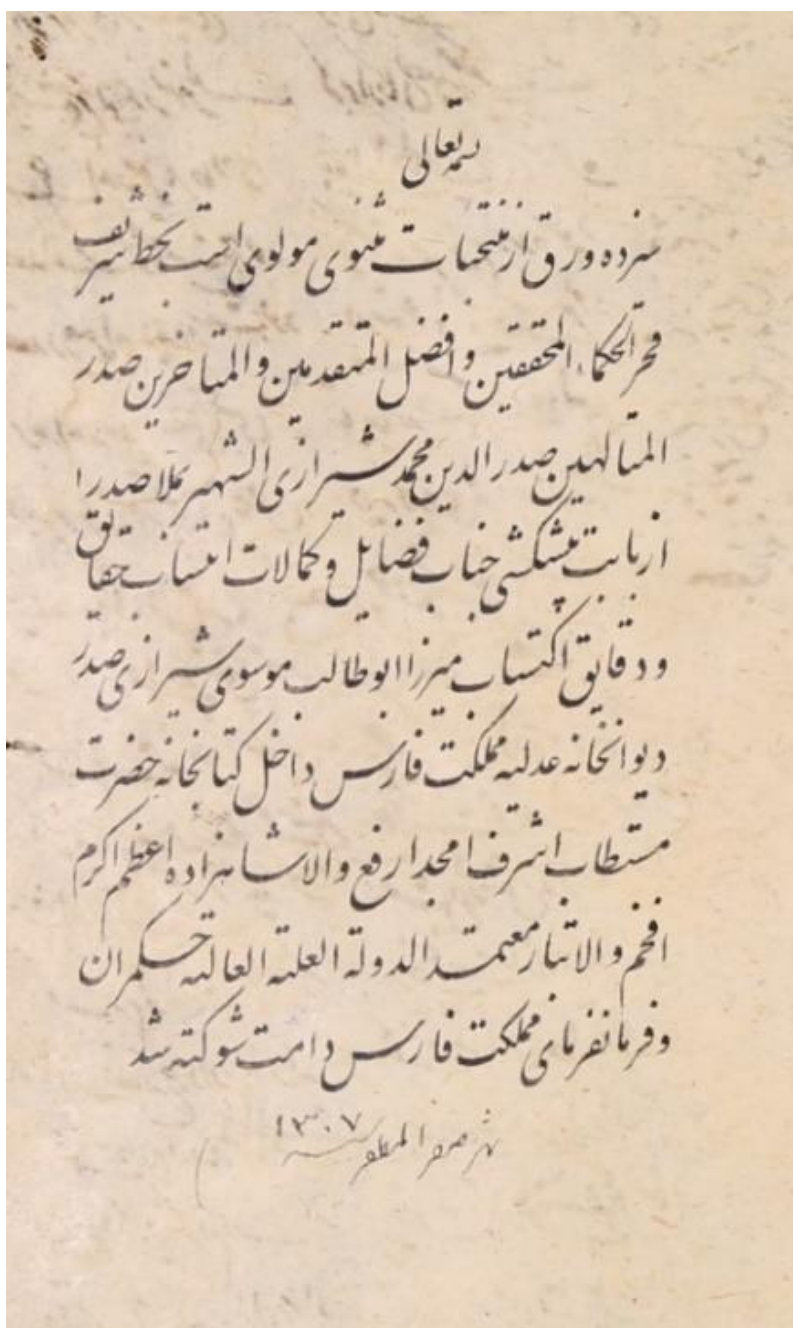 بسمه تعالی
سیزده ورق از منتخبات مثنوی مولوی است بخط شریف
فخر الحکماء المحققین و افضل المتقدمین و المتاخرین صدر
المتالهین صدر الدین محمد شیرازی الشهیر بملا صدرا
از بابت پیشکشی جناب فضایل و کمالات انتساب حقایق
و دقایق اکتساب میرزا ابوطالب موسوی شیرازی صدر
دیوانخانه عدلیه مملکت فارس داخل کتابخانه حضرت
مستطاب اشرف امجد ارفع والا شاهزاده اعظم اکرم
افخم والاتبار معتمد الدولة العلیة العالیه حکمران
و فرمانفرمای مملکت فارس دامت شوکته شد
شهر صفر المظفر سنه ۱۳۰۷